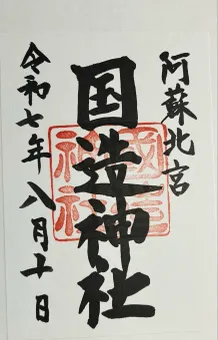 阿蘇北宮
国造神社
令和七年八月十日
國造
神社